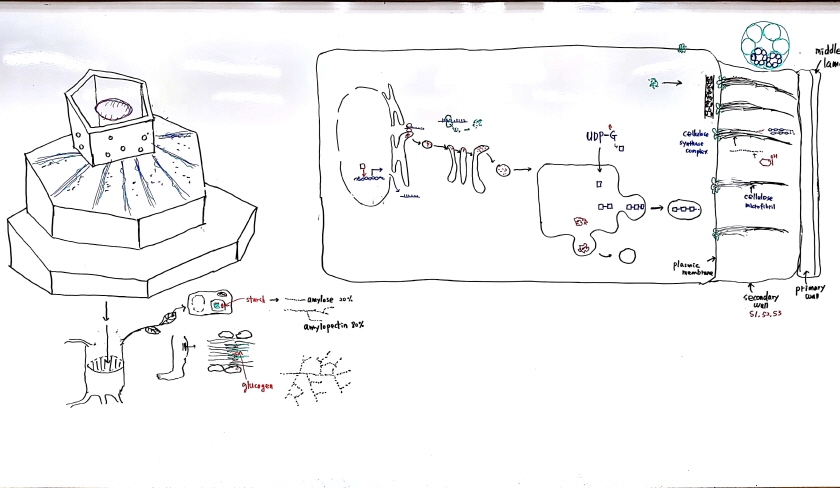 middle
lam
UDP-G
cellulose
synthase
complex
OH
cellulose
microfibril
plasmic
membrane
secondary
wall
S1, S2, S3
primary
wall
starch
amylose 20%
amylopectin 80%
glucogen